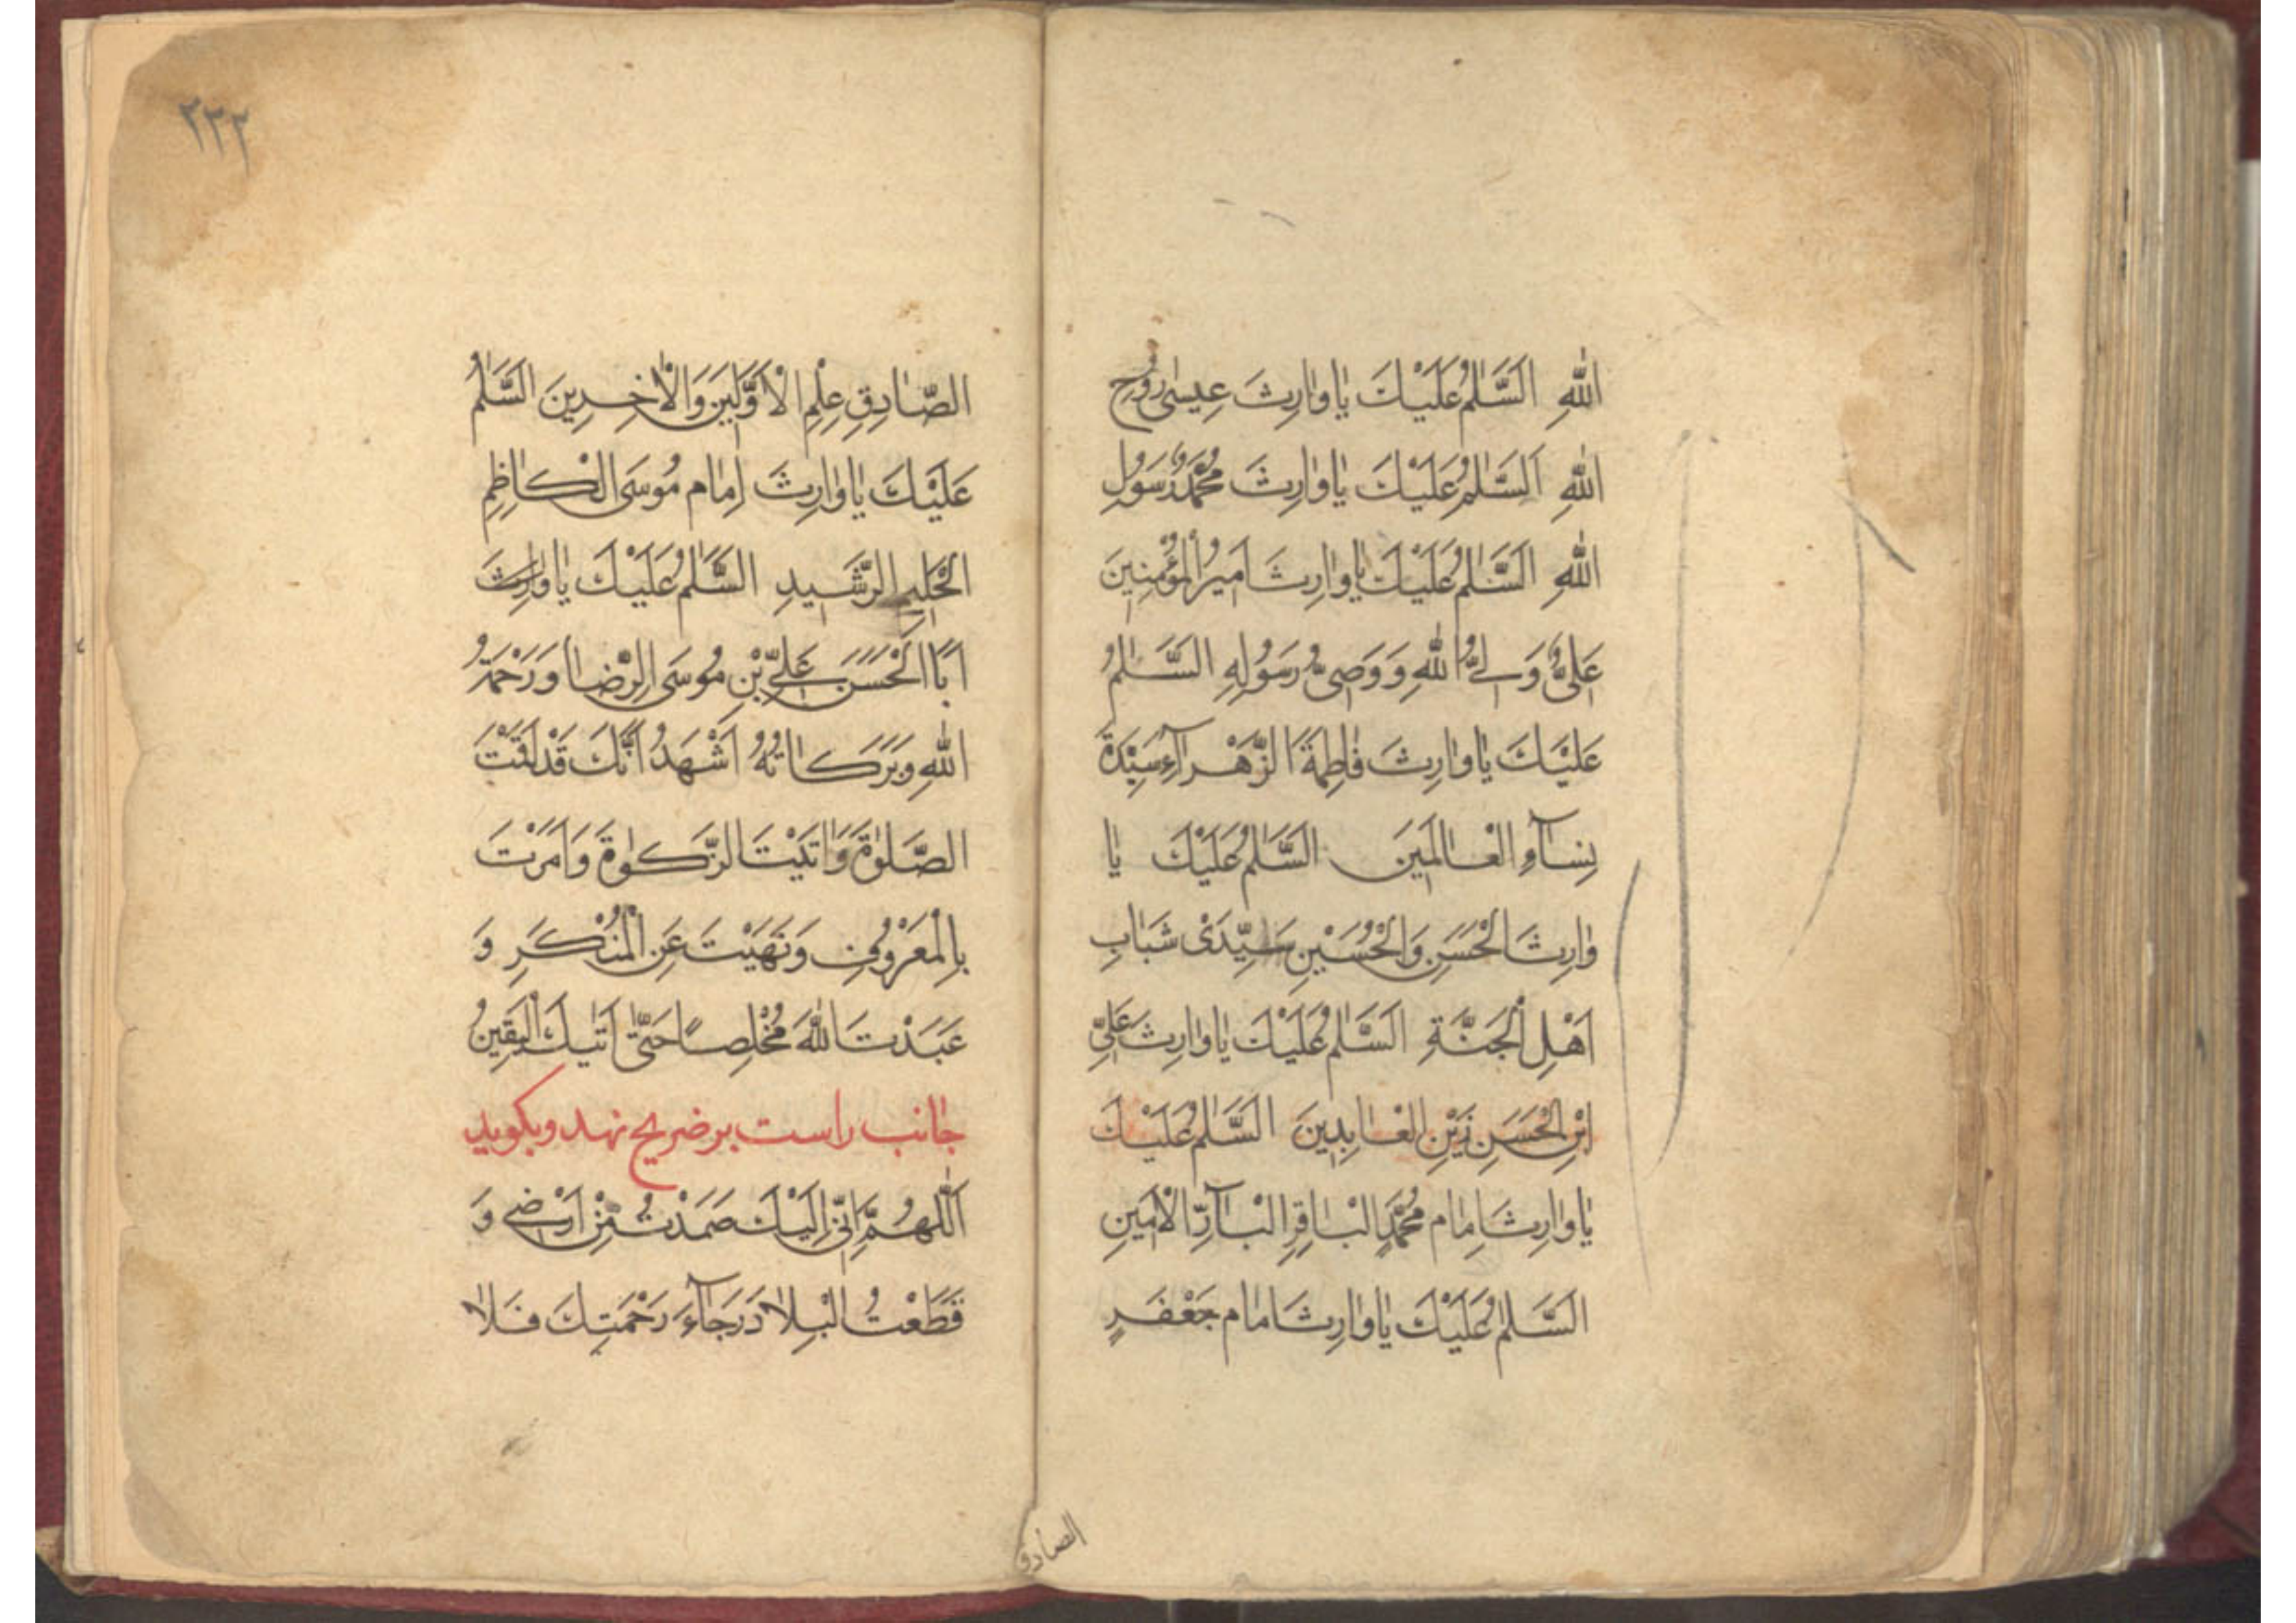 اللهِ اَلسَّلٰمُ عَلَيْكَ يٰا وٰارِثَ عِيسٰى رُوحِ
اللهِ اَلسَّلٰمُ عَلَيْكَ يٰا وٰارِثَ مُحَمَّدٌ رَسُولِ
اللهِ اَلسَّلٰمُ عَلَيْكَ يٰا وٰارِثَ اَمِيرُ الْمُؤْمِنِينَ
عَلِيٌّ وَلِيُّ اللهِ وَوَصِيُّ رَسُولِهِ السَّلٰمُ
عَلَيْكَ يٰا وٰارِثَ فٰاطِمَةَ الزَّهْرٰآءِ سَيِّدَةَ
نِسٰآءِ الْعٰالَمِينَ السَّلٰمُ عَلَيْكَ يٰا
وٰارِثَ الْحَسَنِ وَالْحُسَيْنِ سَيِّدَىْ شَبٰابِ
اَهْلِ الْجَنَّةِ اَلسَّلٰمُ عَلَيْكَ يٰا وٰارِثَ عَلِيِّ
ابْنِ الْحَسَنِ زَيْنِ الْعٰابِدِينَ السَّلٰمُ عَلَيْكَ
يٰا وٰارِثَ اِمٰام مُحَمَّدٍ الْبٰاقِرِ الْبٰآرِّ الْاَمِينِ
السَّلٰمُ عَلَيْكَ يٰا وٰارِثَ امٰام جَعْفَرٍ
الصادق
٢٣٢
الصّٰادِقِ عِلْمِ الْاَوَّلِينَ وَالْاٰخِرِينَ السَّلٰمُ
عَلَيْكَ يٰا وٰارِثَ اِمٰام مُوسَى الْكٰاظِمِ
الْحَلِيمِ الرَّشِيدِ السَّلٰمُ عَلَيْكَ يٰا وٰارِثَ
اَبَا الْحَسَنِ عَلِيِّ بْنِ مُوسَى الرِّضٰا وَرَحْمَةُ
اللهِ وَبَرَكٰاتُهُ اَشْهَدُ اَنَّكَ قَدْ اَقَمْتَ
الصَّلٰوةَ وَاٰتَيْتَ الزَّكٰوةَ وَاَمَرْتَ
بِالْمَعْرُوفِ وَنَهَيْتَ عَنِ الْمُنْكَرِ وَ
عَبَدْتَ اللهَ مُخْلِصاً حَتّٰى اَتٰيكَ الْيَقِينُ
جانب راست بر ضريح نهد و بكويد
اَللّٰهُمَّ اِنّى اِلَيْكَ صَمَدْتُ مِنْ اَرْضِى وَ
قَطَعْتُ الْبِلٰادَ رَجٰآءَ رَحْمَتِكَ فَلٰا